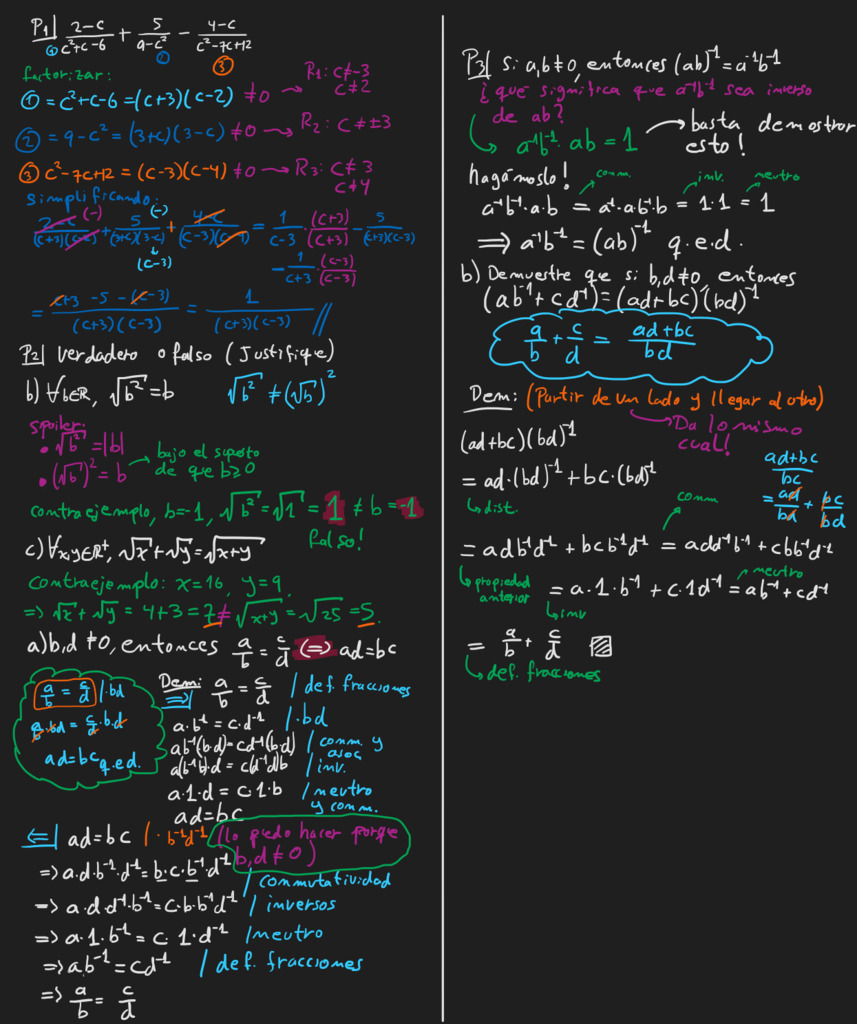 P1| (2-c)/(c²+c-6) + 5/(9-c²) - (4-c)/(c²-7c+12)
① ② ③
factorizar:
① = c²+c-6 = (c+3)(c-2) ≠0 → R₁: c≠-3
c≠2
② = 9-c² = (3+c)(3-c) ≠0 → R₂: c≠±3
③ c²-7c+12 = (c-3)(c-4) ≠0 → R₃: c≠3
c≠4
simplificando:
(2-c)(-)/((c+3)(c-2)) + 5(-)/((3+c)(3-c)) + (4-c)/((c-3)(c-4)) = 1/(c-3)·(c+3)/(c+3) - 5/((c+3)(c-3))
(c-3)
-1/(c+3)·(c-3)/(c-3)
= (c+3-5-(c-3))/((c+3)(c-3)) = 1/((c+3)(c-3)) //
P2| Verdadero o falso (Justifique)
b) ∀b∈ℝ, √b² = b √b² ≠ (√b)²
spoiler:
• √b² = |b|
• (√b)² = b → bajo el supuesto
de que b≥0
contraejemplo, b=-1, √b² = √1 = 1 ≠ b = -1
falso!
c) ∀x,y∈ℝ⁺, √x + √y = √x+y
contraejemplo: x=16, y=9
=> √x + √y = 4+3 = 7 ≠ √x+y = √25 = 5.
a) b,d ≠0, entonces a/b = c/d <=> ad=bc
a/b = c/d /·bd
a/b·bd = c/d·b·d
ad=bc q.e.d.
Dem: a/b = c/d / def. fracciones
=>|
a·b⁻¹ = c·d⁻¹ /·bd
ab⁻¹(b·d) = cd⁻¹(b·d) / comm. y
asoc
a(b⁻¹b)·d = c(d⁻¹d)b / inv.
a·1·d = c·1·b / neutro
y comm.
ad=bc
<=| ad=bc /·b⁻¹d⁻¹ (lo puedo hacer porque
b,d≠0)
=> a·d·b⁻¹·d⁻¹ = b·c·b⁻¹·d⁻¹
/ conmutatividad
-> a·d·d⁻¹·b⁻¹ = c·b·b⁻¹d⁻¹ / inversos
=> a·1·b⁻¹ = c·1·d⁻¹ /neutro
=> a·b⁻¹ = cd⁻¹ / def. fracciones
=> a/b = c/d
P3| Si a,b≠0, entonces (ab)⁻¹ = a⁻¹b⁻¹
¿que significa que a⁻¹b⁻¹ sea inverso
de ab?
a⁻¹b⁻¹·ab = 1 → basta demostrar
esto!
hagámoslo! comm. inv. neutro
a⁻¹b⁻¹·a·b = a⁻¹·a·b⁻¹·b = 1·1 = 1
=> a⁻¹b⁻¹ = (ab)⁻¹ q.e.d.
b) Demuestre que si b,d≠0, entonces
(ab⁻¹+cd⁻¹) = (ad+bc)(bd)⁻¹
a/b + c/d = (ad+bc)/bd
Dem: (Partir de un lado y llegar al otro)
Da lo mismo
cual!
(ad+bc)(bd)⁻¹
= ad·(bd)⁻¹ + bc·(bd)⁻¹
dist.
(ad+bc)/bc
= ad/bd + bc/bd
comm
= adb⁻¹d⁻¹ + bcb⁻¹d⁻¹ = add⁻¹b⁻¹ + cbb⁻¹d⁻¹
propiedad
anterior
= a·1·b⁻¹ + c·1d⁻¹ = ab⁻¹+cd⁻¹
inv neutro
= a/b + c/d ▨
def. fracciones